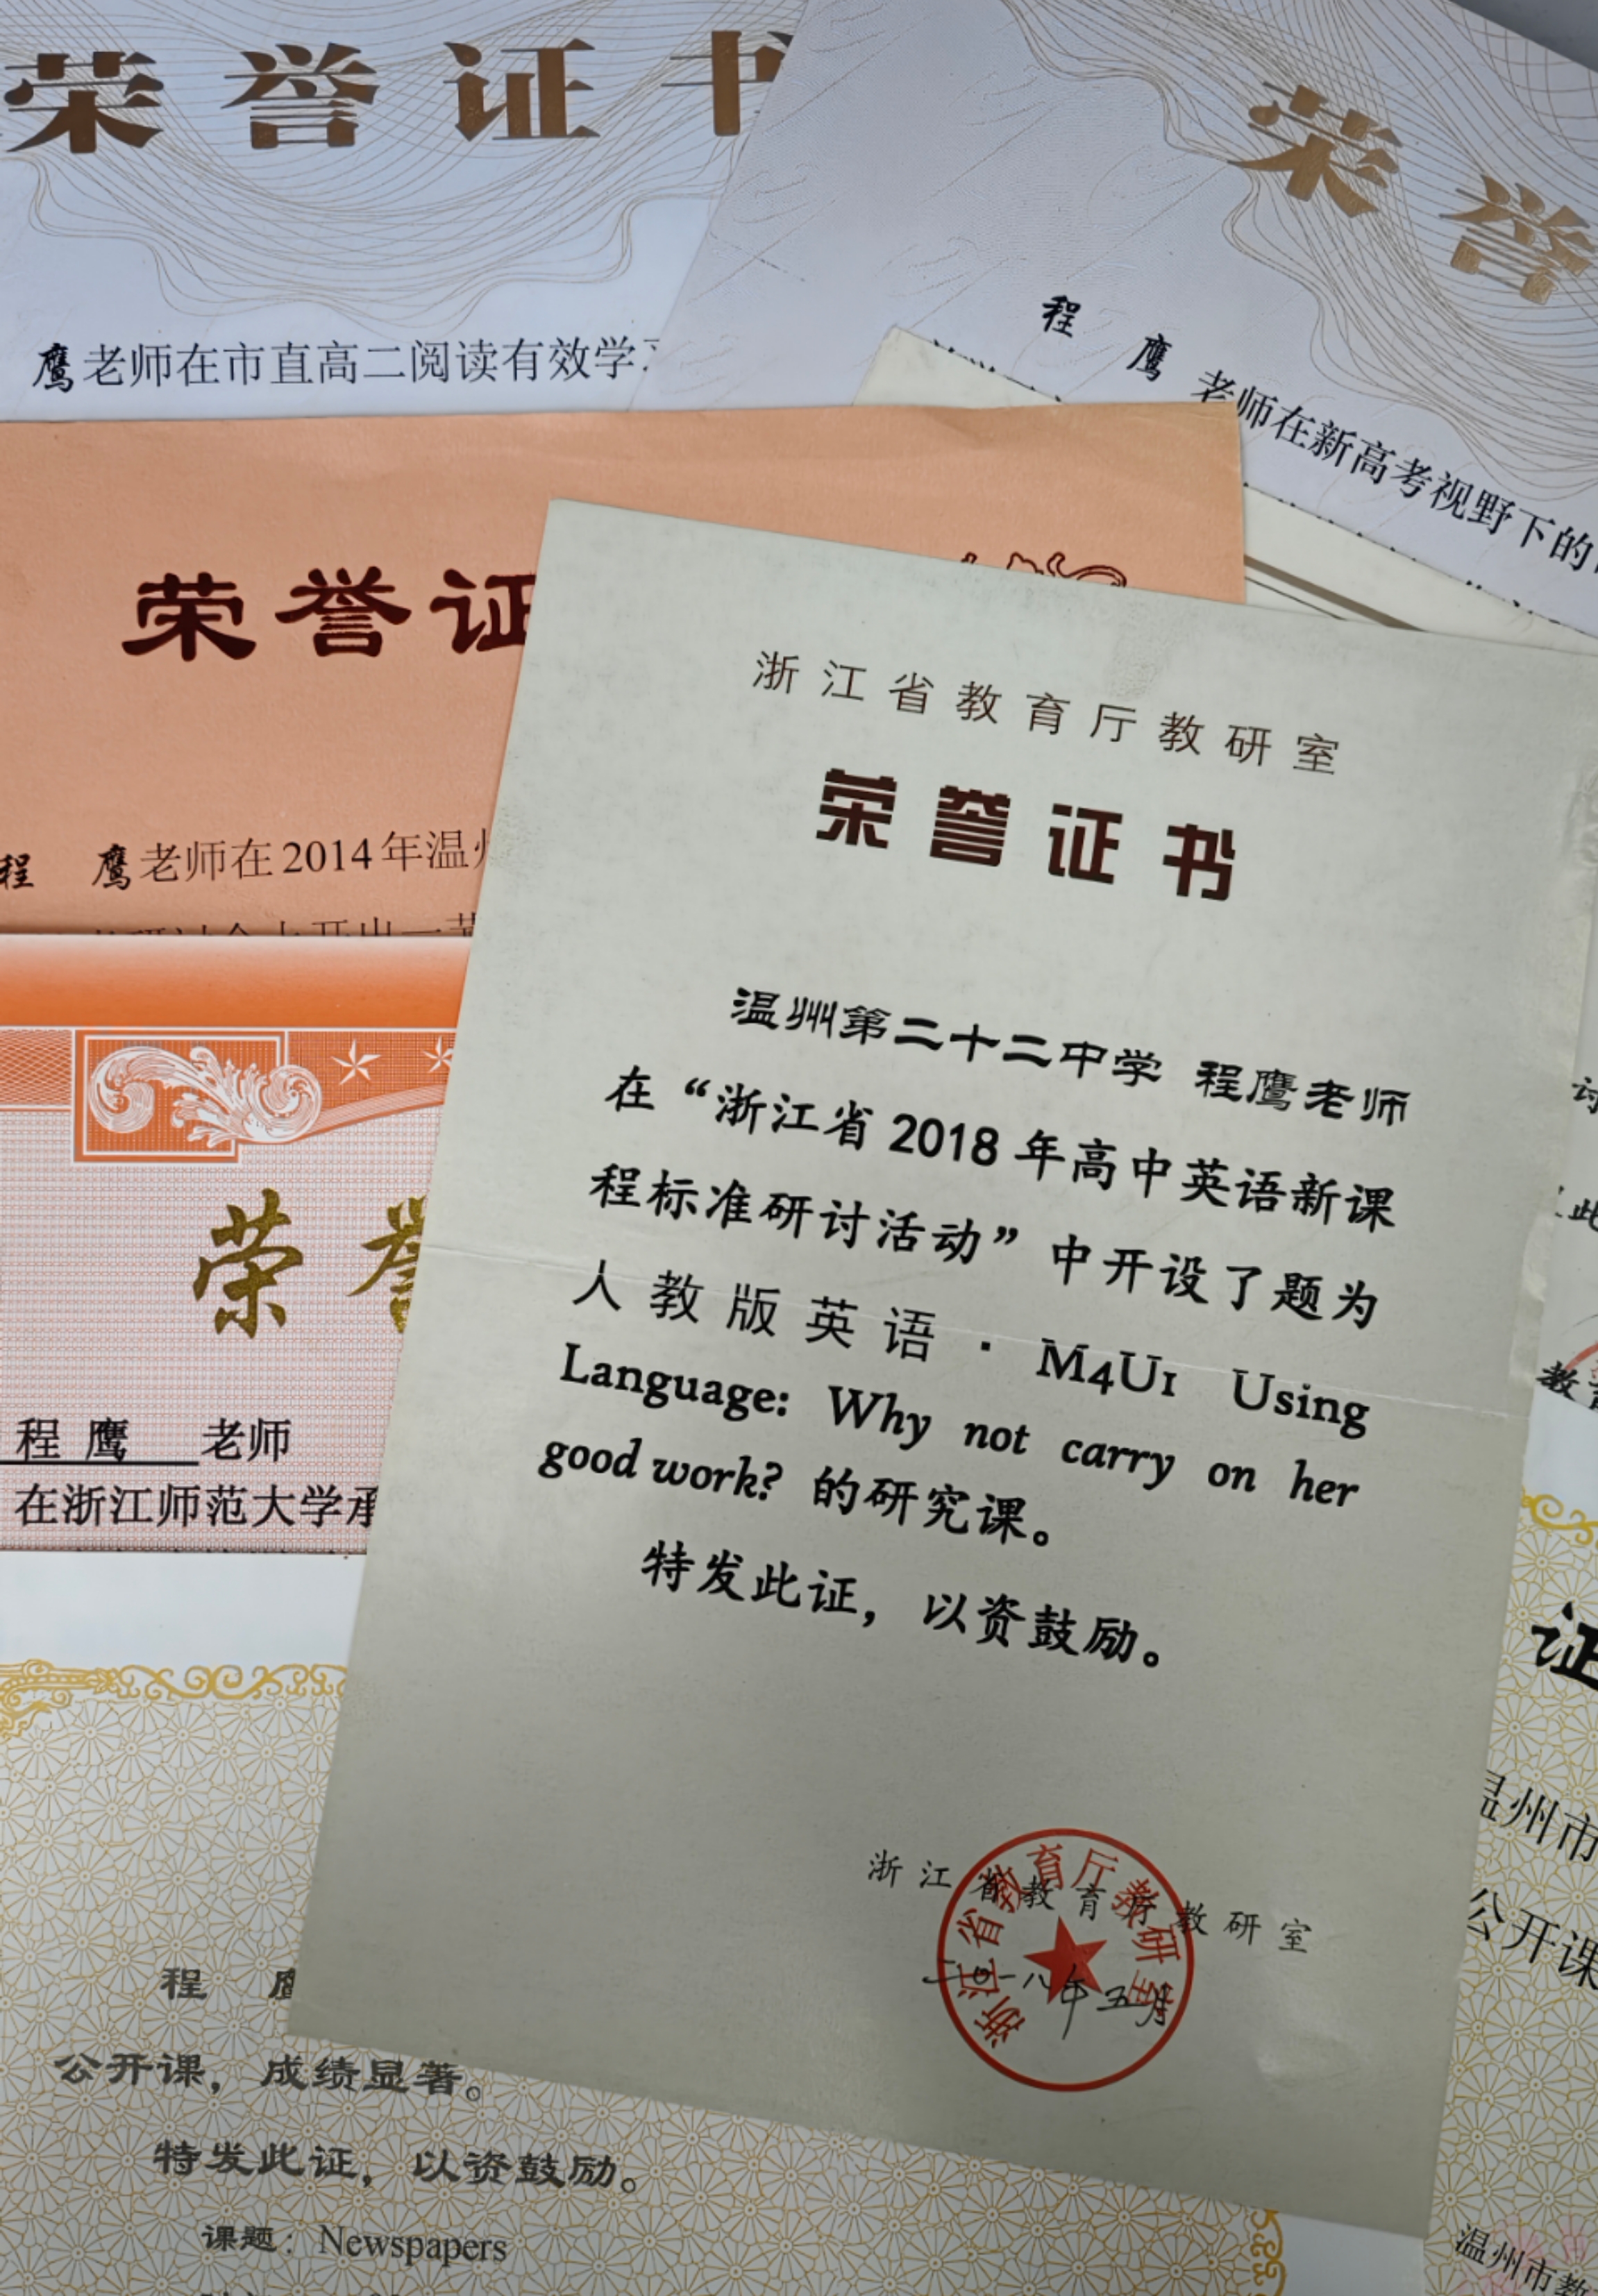 荣誉证书
荣誉
程 鹰
鹰老师在市直高二阅读有效学
老师在新高考视野下的
荣誉证
程 鹰老师在2014年温州
浙江省教育厅教研室
荣誉证书
温州第二十二中学 程鹰老师
在“浙江省2018年高中英语新课
程标准研讨活动”中开设了题为
人教版英语·M4U1 Using
Language: Why not carry on her
good work? 的研究课。
特发此证，以资鼓励。
浙江省教育厅教研室
二〇一八年五月
浙江省教育厅教研室
荣誉
程 鹰 老师
在浙江师范大学承
程 鹰
公开课，成绩显著。
特发此证，以资鼓励。
课题：Newspapers
证
温州市
公开课
温州市教